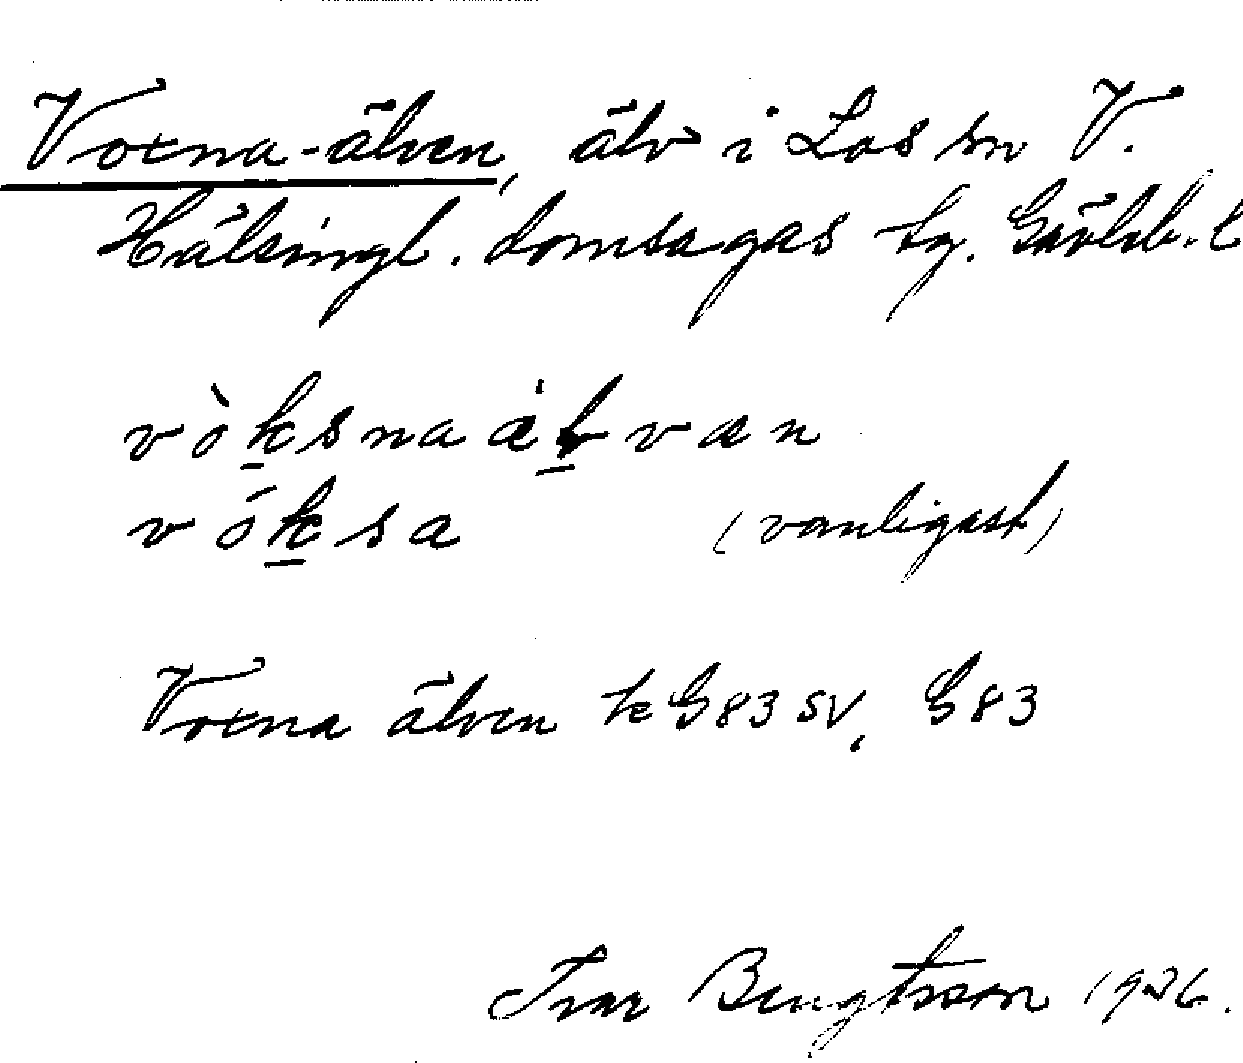 Voxna-älven, älv i Los sn V.
Hälsingl. domsagas tg. Gävleb. l
vòksnaälvæn
vóksa (vanligast)
Voxna älven te G83 SV, G83
Ivar Bengtsson 1926.